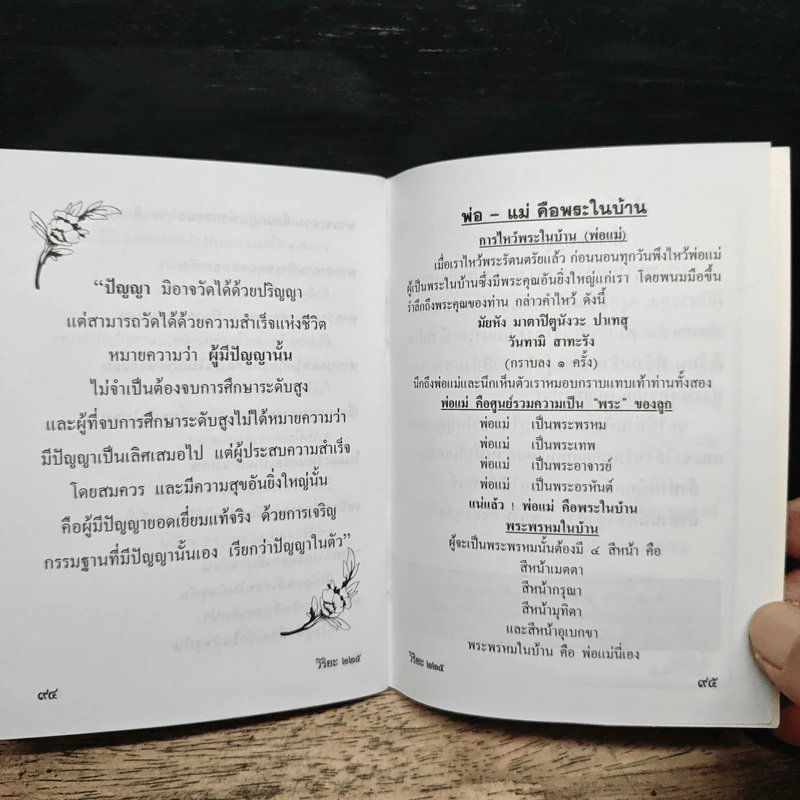 “ปัญญา มิอาจวัดได้ด้วยปริญญา
แต่สามารถวัดได้ด้วยความสำเร็จแห่งชีวิต
หมายความว่า ผู้มีปัญญานั้น
ไม่จำเป็นต้องจบการศึกษาระดับสูง
และผู้ที่จบการศึกษาระดับสูงไม่ได้หมายความว่า
มีปัญญาเป็นเลิศเสมอไป แต่ผู้ประสบความสำเร็จ
โดยสมควร และมีความสุขอันยิ่งใหญ่นั้น
คือผู้มีปัญญายอดเยี่ยมแท้จริง ด้วยการเจริญ
กรรมฐานที่มีปัญญานั้นเอง เรียกว่าปัญญาในตัว”
วิริยะ ๒๒๕
๙๔
พ่อ – แม่ คือพระในบ้าน
การไหว้พระในบ้าน (พ่อแม่)
เมื่อเราไหว้พระรัตนตรัยแล้ว ก่อนนอนทุกวันพึงไหว้พ่อแม่
ผู้เป็นพระในบ้านซึ่งมีพระคุณอันยิ่งใหญ่แก่เรา โดยพนมมือขึ้น
รำลึกถึงพระคุณของท่าน กล่าวคำไหว้ ดังนี้
มัยหัง มาตาปิตูนังวะ ปาเทสุ
วันทามิ สาทะรัง
(กราบลง ๑ ครั้ง)
นึกถึงพ่อแม่และนึกเห็นตัวเราหมอบกราบแทบเท้าท่านทั้งสอง
พ่อแม่ คือศูนย์รวมความเป็น “พระ” ของลูก
พ่อแม่ เป็นพระพรหม
พ่อแม่ เป็นพระเทพ
พ่อแม่ เป็นพระอาจารย์
พ่อแม่ เป็นพระอรหันต์
แน่แล้ว ! พ่อแม่ คือพระในบ้าน
พระพรหมในบ้าน
ผู้จะเป็นพระพรหมนั้นต้องมี ๔ สีหน้า คือ
สีหน้าเมตตา
สีหน้ากรุณา
สีหน้ามุทิตา
และสีหน้าอุเบกขา
พระพรหมในบ้าน คือ พ่อแม่นี่เอง
วิริยะ ๒๒๕
๙๕